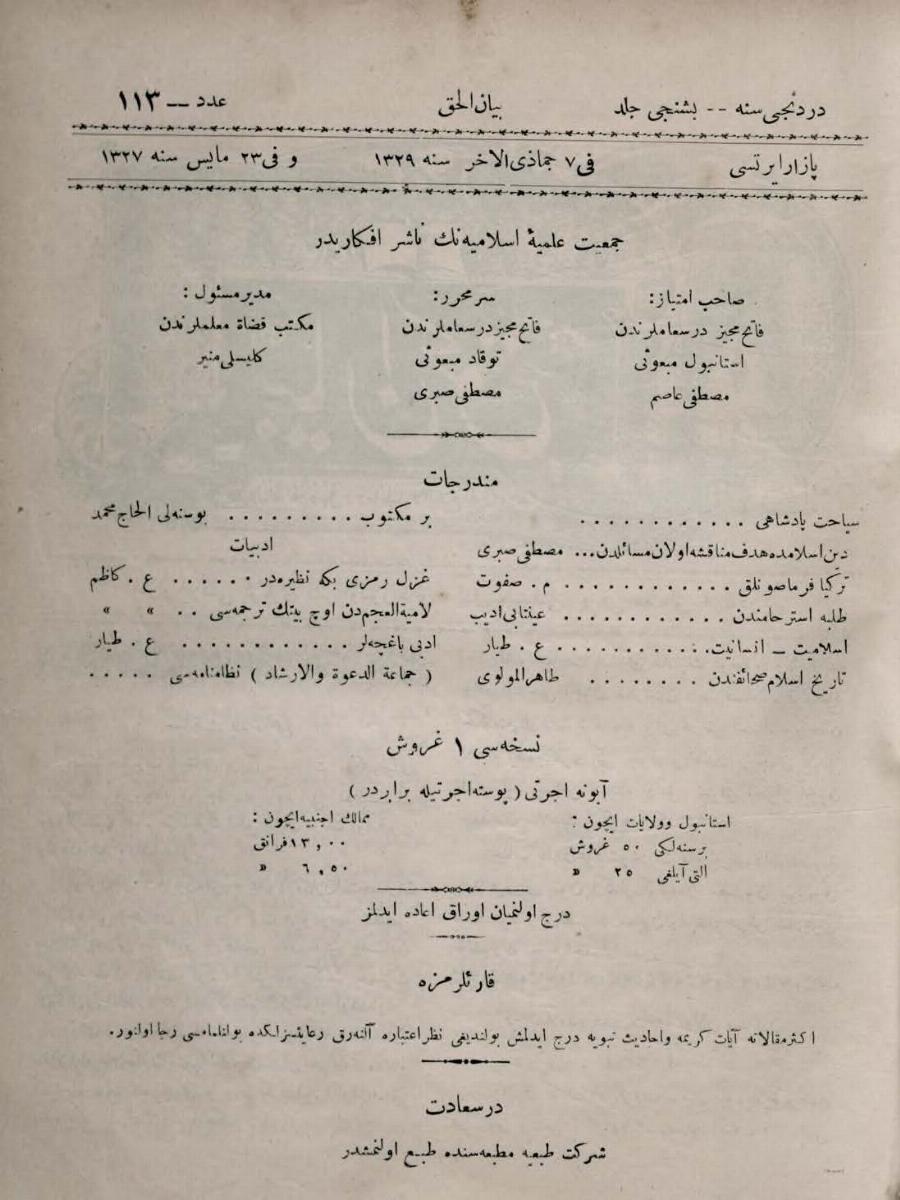 دردنجی سنه -- بشنجی جلد
بیان الحق
عدد — ۱۱۳
پازار ایرتسی
فی ۷ جماذی الاخر سنه ۱۳۲۹
و فی ۲۳ مایس سنه ۱۳۲۷
جمعیت علمیۀ اسلامیه نك ناشر افكاریدر
صاحب امتیاز :
فاتح مجیز درسعاملرندن
استانبول مبعوثی
مصطفی عاصم
سر محرر :
فاتح مجیز درسعاملرندن
توقاد مبعوثی
مصطفی صبری
مدیر مسئول :
مكتب قضاة معلملرندن
كلیسلی منیر
مندرجات
سیاحت پادشاهی . . . . . . . . . . . .
دین اسلامده هدف مناقشه اولان مسائلدن... مصطفی صبری
تركیا فرماصونلق . . . . . . . . . . . . م . صفوت
طلبه استرحامندن . . . . . . . . . . . . عینتابی ادیب
اسلامیت — انسانیت . . . . . . . . . . . ع . طیار
تاریخ اسلام صحائفندن . . . . . . . . طاهر المولوی
بر مكتوب . . . . . . . . . بوسنه لی الحاج محمد
ادبیات
غزل رمزی بكه نظیره در . . . . . . ع . كاظم
لامیة العجم دن اوچ بیتك ترجمه سی . . » »
ادبی باغچه لر . . . . . . . . . . . . ع . طیار
( جماعة الدعوة والارشاد ) نظامنامه سی . . . . .
نسخه سی ۱ غروش
آبونه اجرتی ( پوسته اجرتیله برابردر )
استانبول وولایات ایچون :
برسنه لكی ۵۰ غروش
التی آیلغی ۲۵ »
ممالك اجنبیه ایچون :
۱۳,۰۰ فرانق
٦,۵۰ »
درج اولنمیان اوراق اعاده ایدلمز
قارئلرمزه
اكثر مقالاته آیات كریمه واحادیث نبویه درج ایدلمش بولندیغی نظر اعتباره آلنه رق رعایتسزلكده بولنلمامسی رجا اولنور.
درسعادت
شركت طبعیه مطبعه سنده طبع اولنمشدر